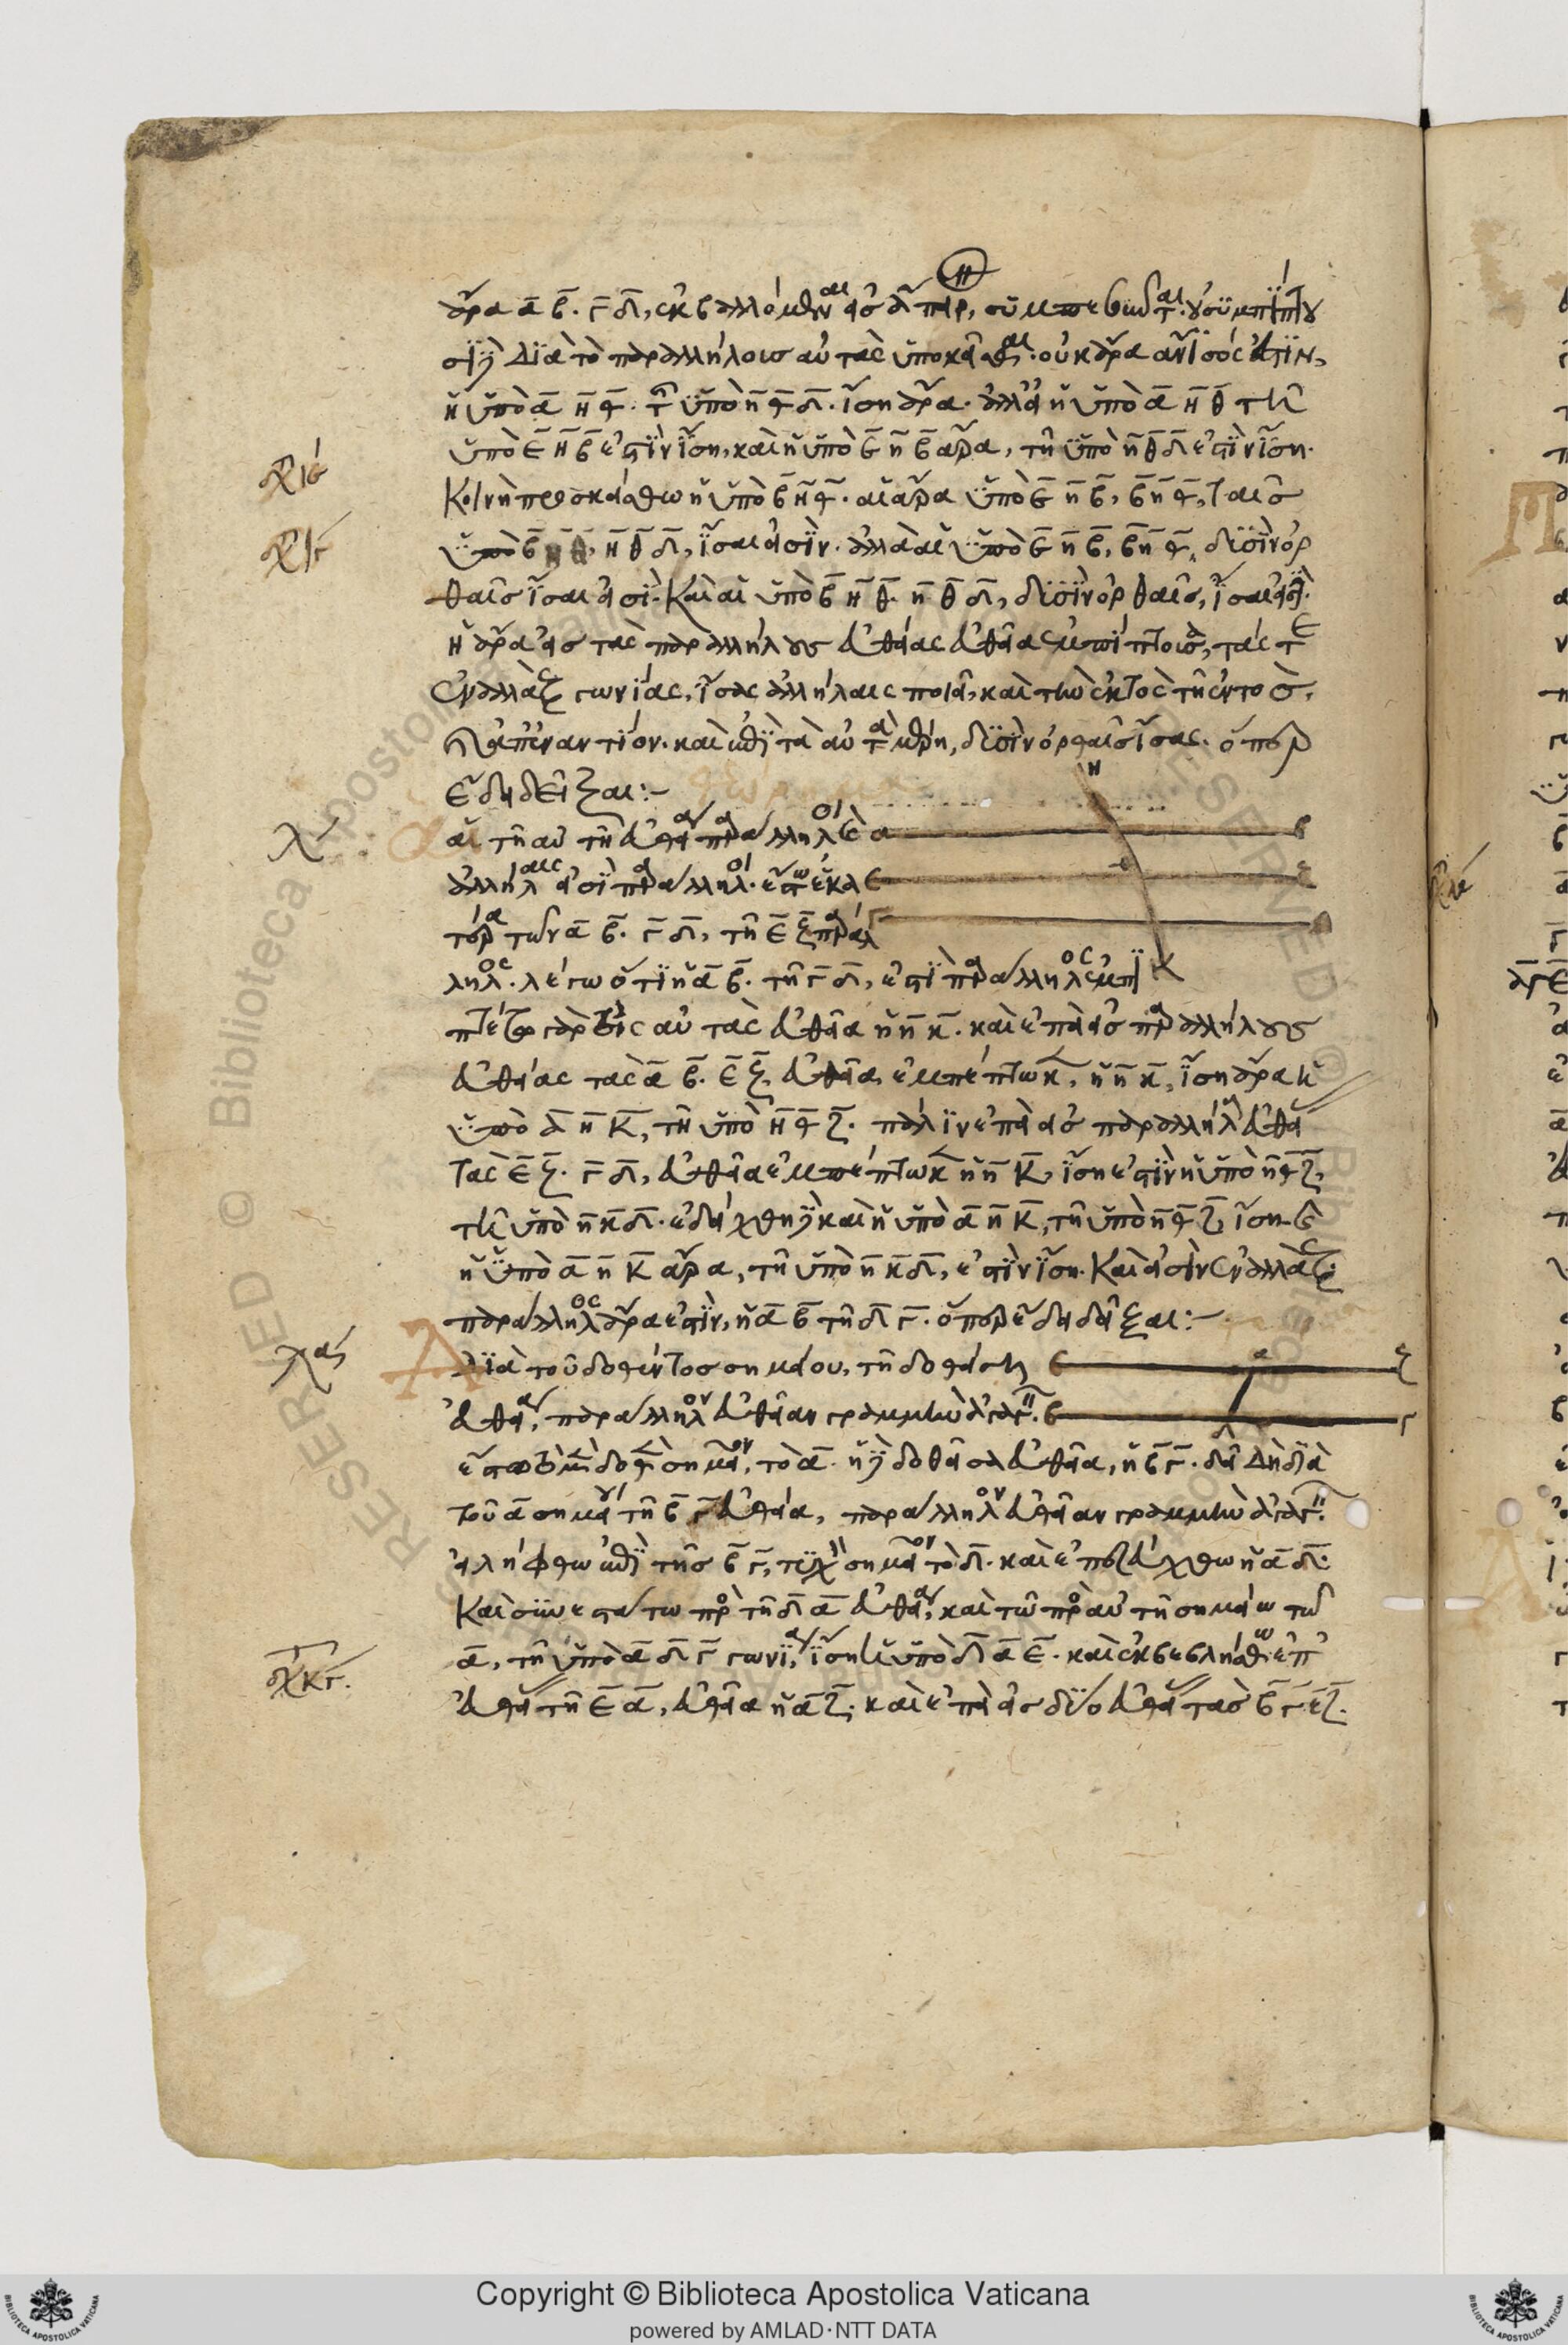 ἄρα α β. γ δ, ἐκβαλλόμεναι εἰς ἄπειρ, συμπεσοῦνται. οὐ συμπίπτου
σι δὲ διὰ τὸ παραλλήλους αὐτὰς ὑποκεῖσθαι. οὐκ ἄρα ἄνισός ἐστιν,
ἡ ὑπὸ α η θ. τῇ ὑπὸ η θ δ. ἴση ἄρα. ἀλλὰ ἡ ὑπὸ α η θ τῇ
ὑπὸ ε η β ἐστὶν ἴση, καὶ ἡ ὑπὸ ε η β ἄρα, τῇ ὑπὸ η θ δ ἐστὶν ἴση.
Κοινὴ προσκείσθω ἡ ὑπὸ β η θ. αἱ ἄρα ὑπὸ ε η β, β η θ, ταῖς
ὑπὸ β η θ, η θ δ, ἴσαι εἰσίν. ἀλλὰ αἱ ὑπὸ ε η β, β η θ, δυσὶν ὀρ
θαῖς ἴσαι εἰσί. Καὶ αἱ ὑπὸ β η θ. η θ δ, δυσὶν ὀρθαῖς, ἴσαι εἰσί.
ἡ ἄρα εἰς τὰς παραλλήλους εὐθείας εὐθεῖα ἐμπίπτουσα, τάς τε
ἐναλλὰξ γωνίας, ἴσας ἀλλήλαις ποιεῖ, καὶ τὴν ἐκτὸς τῇ ἐντὸς,
ἀπεναντίον. καὶ ἐπὶ τὰ αὐτὰ μέρη, δυσὶν ὀρθαῖς ἴσας. ὅπερ
ἔδει δεῖξαι:–
αἱ τῇ αὐτῇ εὐθείᾳ παράλληλοι, καὶ α β
ἀλλήλαις εἰσὶ παράλληλοι. ἔστω ἑκα ε ζ
τέρα τῶν α β. γ δ, τῇ ε ζ παράλ
ληλος. λέγω ὅτι ἡ α β. τῇ γ δ, ἐστὶ παράλληλος ἐμπι κ
πτέτω γὰρ εἰς αὐτὰς εὐθεῖα ἡ η κ. καὶ ἐπεὶ εἰς παραλλήλους
εὐθείας τὰς α β. ε ζ, εὐθεῖα ἐμπέπτωκ, ἡ η κ, ἴση ἄρα ἡ
ὑπὸ α η κ, τῇ ὑπὸ η θ ζ. πάλιν ἐπεὶ εἰς παραλλήλ εὐθεί
τὰς ε ζ. γ δ, εὐθεῖα ἐμπέπτωκ ἡ η κ, ἴση ἐστὶν ἡ ὑπὸ η θ ζ,
τῇ ὑπὸ η κ δ. ἐδείχθη δὲ καὶ ἡ ὑπὸ α η κ, τῇ ὑπὸ η θ ζ ἴση. καὶ
ἡ ὑπὸ α η κ ἄρα, τῇ ὑπὸ η κ δ, ἐστὶν ἴση. Καὶ εἰσὶν ἐναλλάξ.
παράλληλος ἄρα ἐστὶν, ἡ α β τῇ δ γ. ὅπερ ἔδει δεῖξαι:–
Διὰ τοῦ δοθέντος σημείου, τῇ δοθείσῃ ε α ζ
εὐθείᾳ, παράλληλον εὐθεῖαν γραμμὴν ἀγαγεῖν. β γ
ἔστω τὸ μὲν δοθὲν σημεῖον, τὸ α. ἡ δὲ δοθεῖσα εὐθεῖα, ἡ β γ. δεῖ δὴ διὰ
τοῦ α σημείου τῇ β γ εὐθείᾳ, παράλληλον εὐθεῖαν γραμμὴν ἀγαγεῖν.
εἰλήφθω ἐπὶ τῆς β γ, τυχὸν σημεῖον τὸ δ. καὶ ἐπεζεύχθω ἡ α δ.
Καὶ συνεστάτω πρὸς τῇ δ α εὐθείᾳ, καὶ τῷ πρὸς αὐτῇ σημείῳ τῷ
α, τῇ ὑπὸ α δ γ γωνίᾳ, ἴση ἡ ὑπὸ δ α ε. καὶ ἐκβεβλήσθω ἐπ
εὐθεί τῇ ε α, εὐθεῖα ἡ α ζ. καὶ ἐπεὶ εἰς δύο εὐθεί τὰς β γ ε ζ.
Copyright © Biblioteca Apostolica Vaticana
powered by AMLAD·NTT DATA